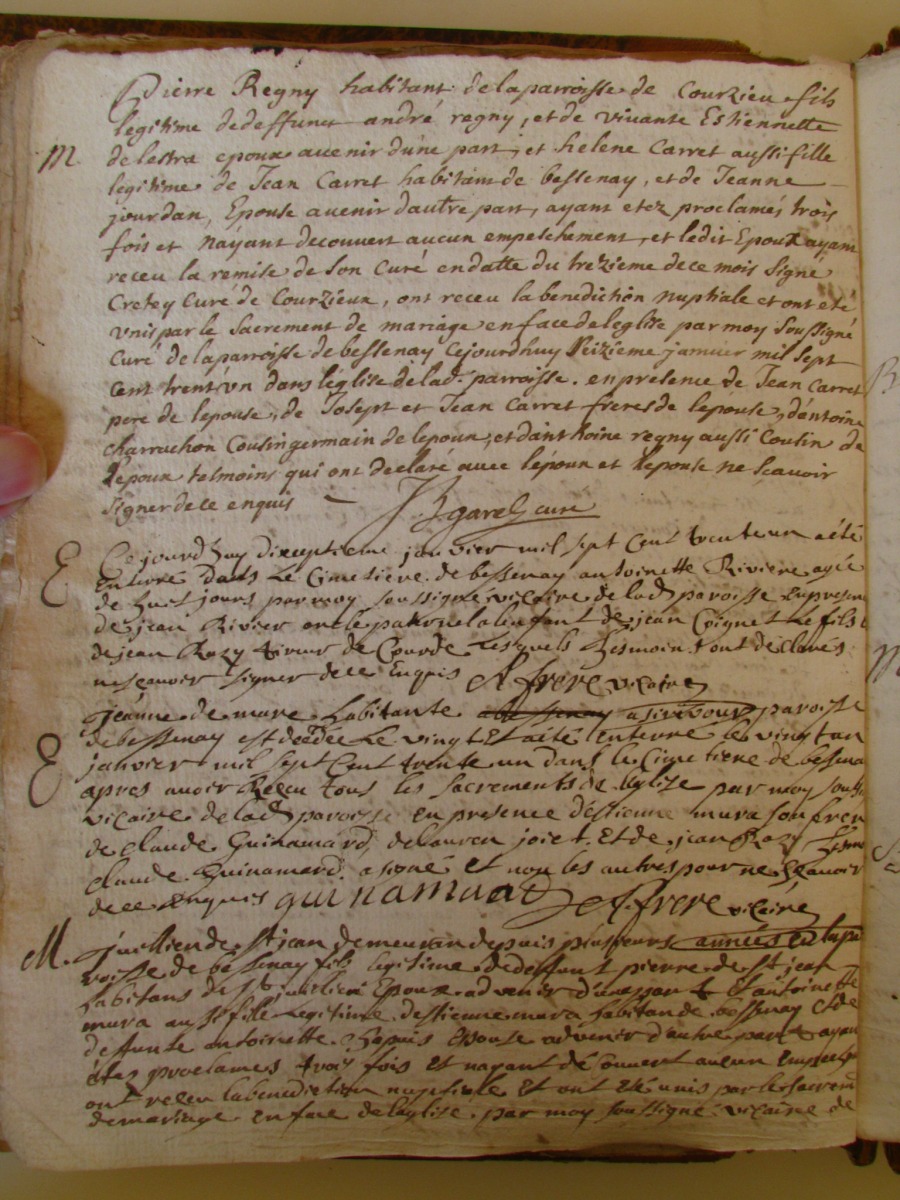 Pierre Regny habitant de la parroisse de Courzieu fils
legitime de deffunct andré regny, et de vivante Estiennette
M. de lestra epoux avenir d'une part, et helene Carret aussi fille
legitime de Jean Carret habitant de bessenay, et de Jeanne
jourdan, Epouse avenir dautre part, ayant etez proclamés trois
fois et n'ayant decouvert aucun empeschement, et ledit Epoux ayant
receu la remise de son Curé en datte du trezieme de ce mois signé
Cretey Curé de Courzieux, ont receu la benediction nuptiale et ont eté
unis par le sacrement de mariage en face de leglise par moy soussigné
Curé de la parroisse de bessenay Cejourdhuy seizieme janvier mil sept
cent trent'un dans l'église de lad. parroisse. en presence de Jean Carret
pere de lepouse, de Josept et Jean Carret freres de lepouse, d'antoine
charrachon Cousin germain de lepoux, et danthoine regny aussi Cousin de
lepoux tesmoins qui ont declaré avec lépoux et lepouse ne scavoir
signer de ce enquis
curé
E Cejourdhuy dixseptieme janvier mil sept Cent trente un a été
Enterré dans le Cimetiere de bessenay antoinette Riviere agée
de huit jours par moy soussigné vicaire de lad. paroisse En presen
de jean Rivier oncle paternel a lenfant de jean Coignet le fils
de jean Rozy tireur de Courde lesquels thesmoins ont declarés
ne scavoir signer de ce Enquis A frere vicaire
jeanne de mure habitante a bessenay paroisse
E de bessenay est decedee Le vingt Et a eté Enterré le vingt un
janvier mil sept Cent trente un dans le Cimetiere de bessena
apres avoir Receu tous les sacrements de leglise par moy souss
vicaire de lad. paroisse en presence d'estienne mura son frere
de Claude Guinamard, de lauren joiet. Et de jean Rozy thesmo
Claude Guinamard a signé et non les autres pour ne Sçavoir
de ce Enquis guinamard A. frere vicaire
M. jullien de St jean demeuran depuis plusieurs années en la pa
roisse de bessenay fils legitime de deffunt pierre de St jean
habitans de St Epoux advenir d'une part Et antoinette
mura aussi fille legitime destienne mura habitan de bessenay Et de
deffunte antoinette Epouse advenir d'autre part ayan
étes proclames trois fois Et nayant découvert aucun Empesch
ont receu la benediction nuptiale Et ont eté unis par le sacrem
de mariage en face de leglise par moy soussigné vicaire de